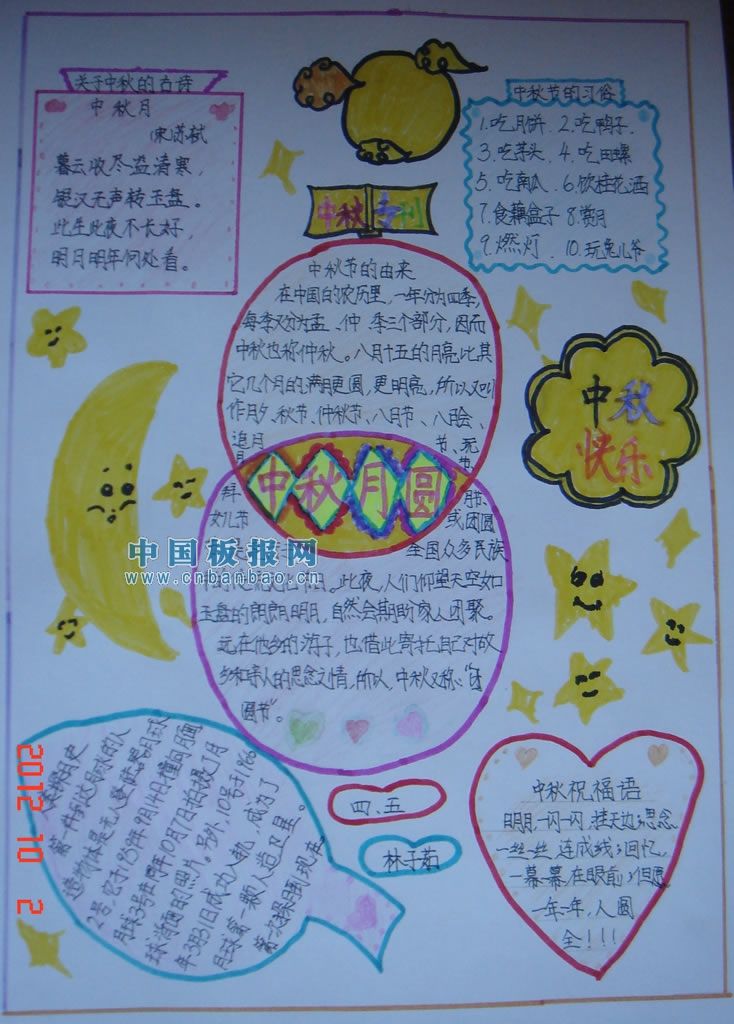 关于中秋的古诗
中秋月
宋 苏轼
暮云收尽溢清寒，
银汉无声转玉盘。
此生此夜不长好，
明月明年何处看。
中秋节的习俗
1.吃月饼 2.吃鸭子.
3.吃芋头、4.吃田螺
5.吃南瓜、6.饮桂花酒
7.食藕盒子 8.赏月
9.燃灯、10.玩兔儿爷
中秋专刊
中秋节的由来
在中国的农历里，一年分为四季，
每季又分为孟、仲、季三个部分，因而
中秋也称仲秋。八月十五的月亮比其
它几个月的满月更圆，更明亮，所以又叫
作月夕、秋节、仲秋节、八月节、八月会、
追月 节、玩
节、
拜 月节、
女儿节 或团圆
全国众多民族
日。此夜，人们仰望天空如
玉盘的朗朗明月，自然会期盼家人团聚。
远在他乡的游子，也借此寄托自己对故
乡和亲人的思念之情，所以，中秋又称："团
圆节"。
中秋月圆
中秋快乐
中国板报网
www.cnbanbao.cn
人类探月史
第一件到达月球的人
造物体是无人登陆器月球
2号，它于1959年9月14日撞向月面
月球3号在同年10月7日拍摄了月
球背面的照片。另外，10号于1966
年3月31日成功入轨，成为了
月球第一颗人造卫星。
四、五
林子茹
中秋祝福语
明月，一闪一闪，挂天边；思念
一丝一丝，连成线；回忆，
一幕一幕，在眼前；但愿
一年一年，人圆
全！！！
2012 10 2